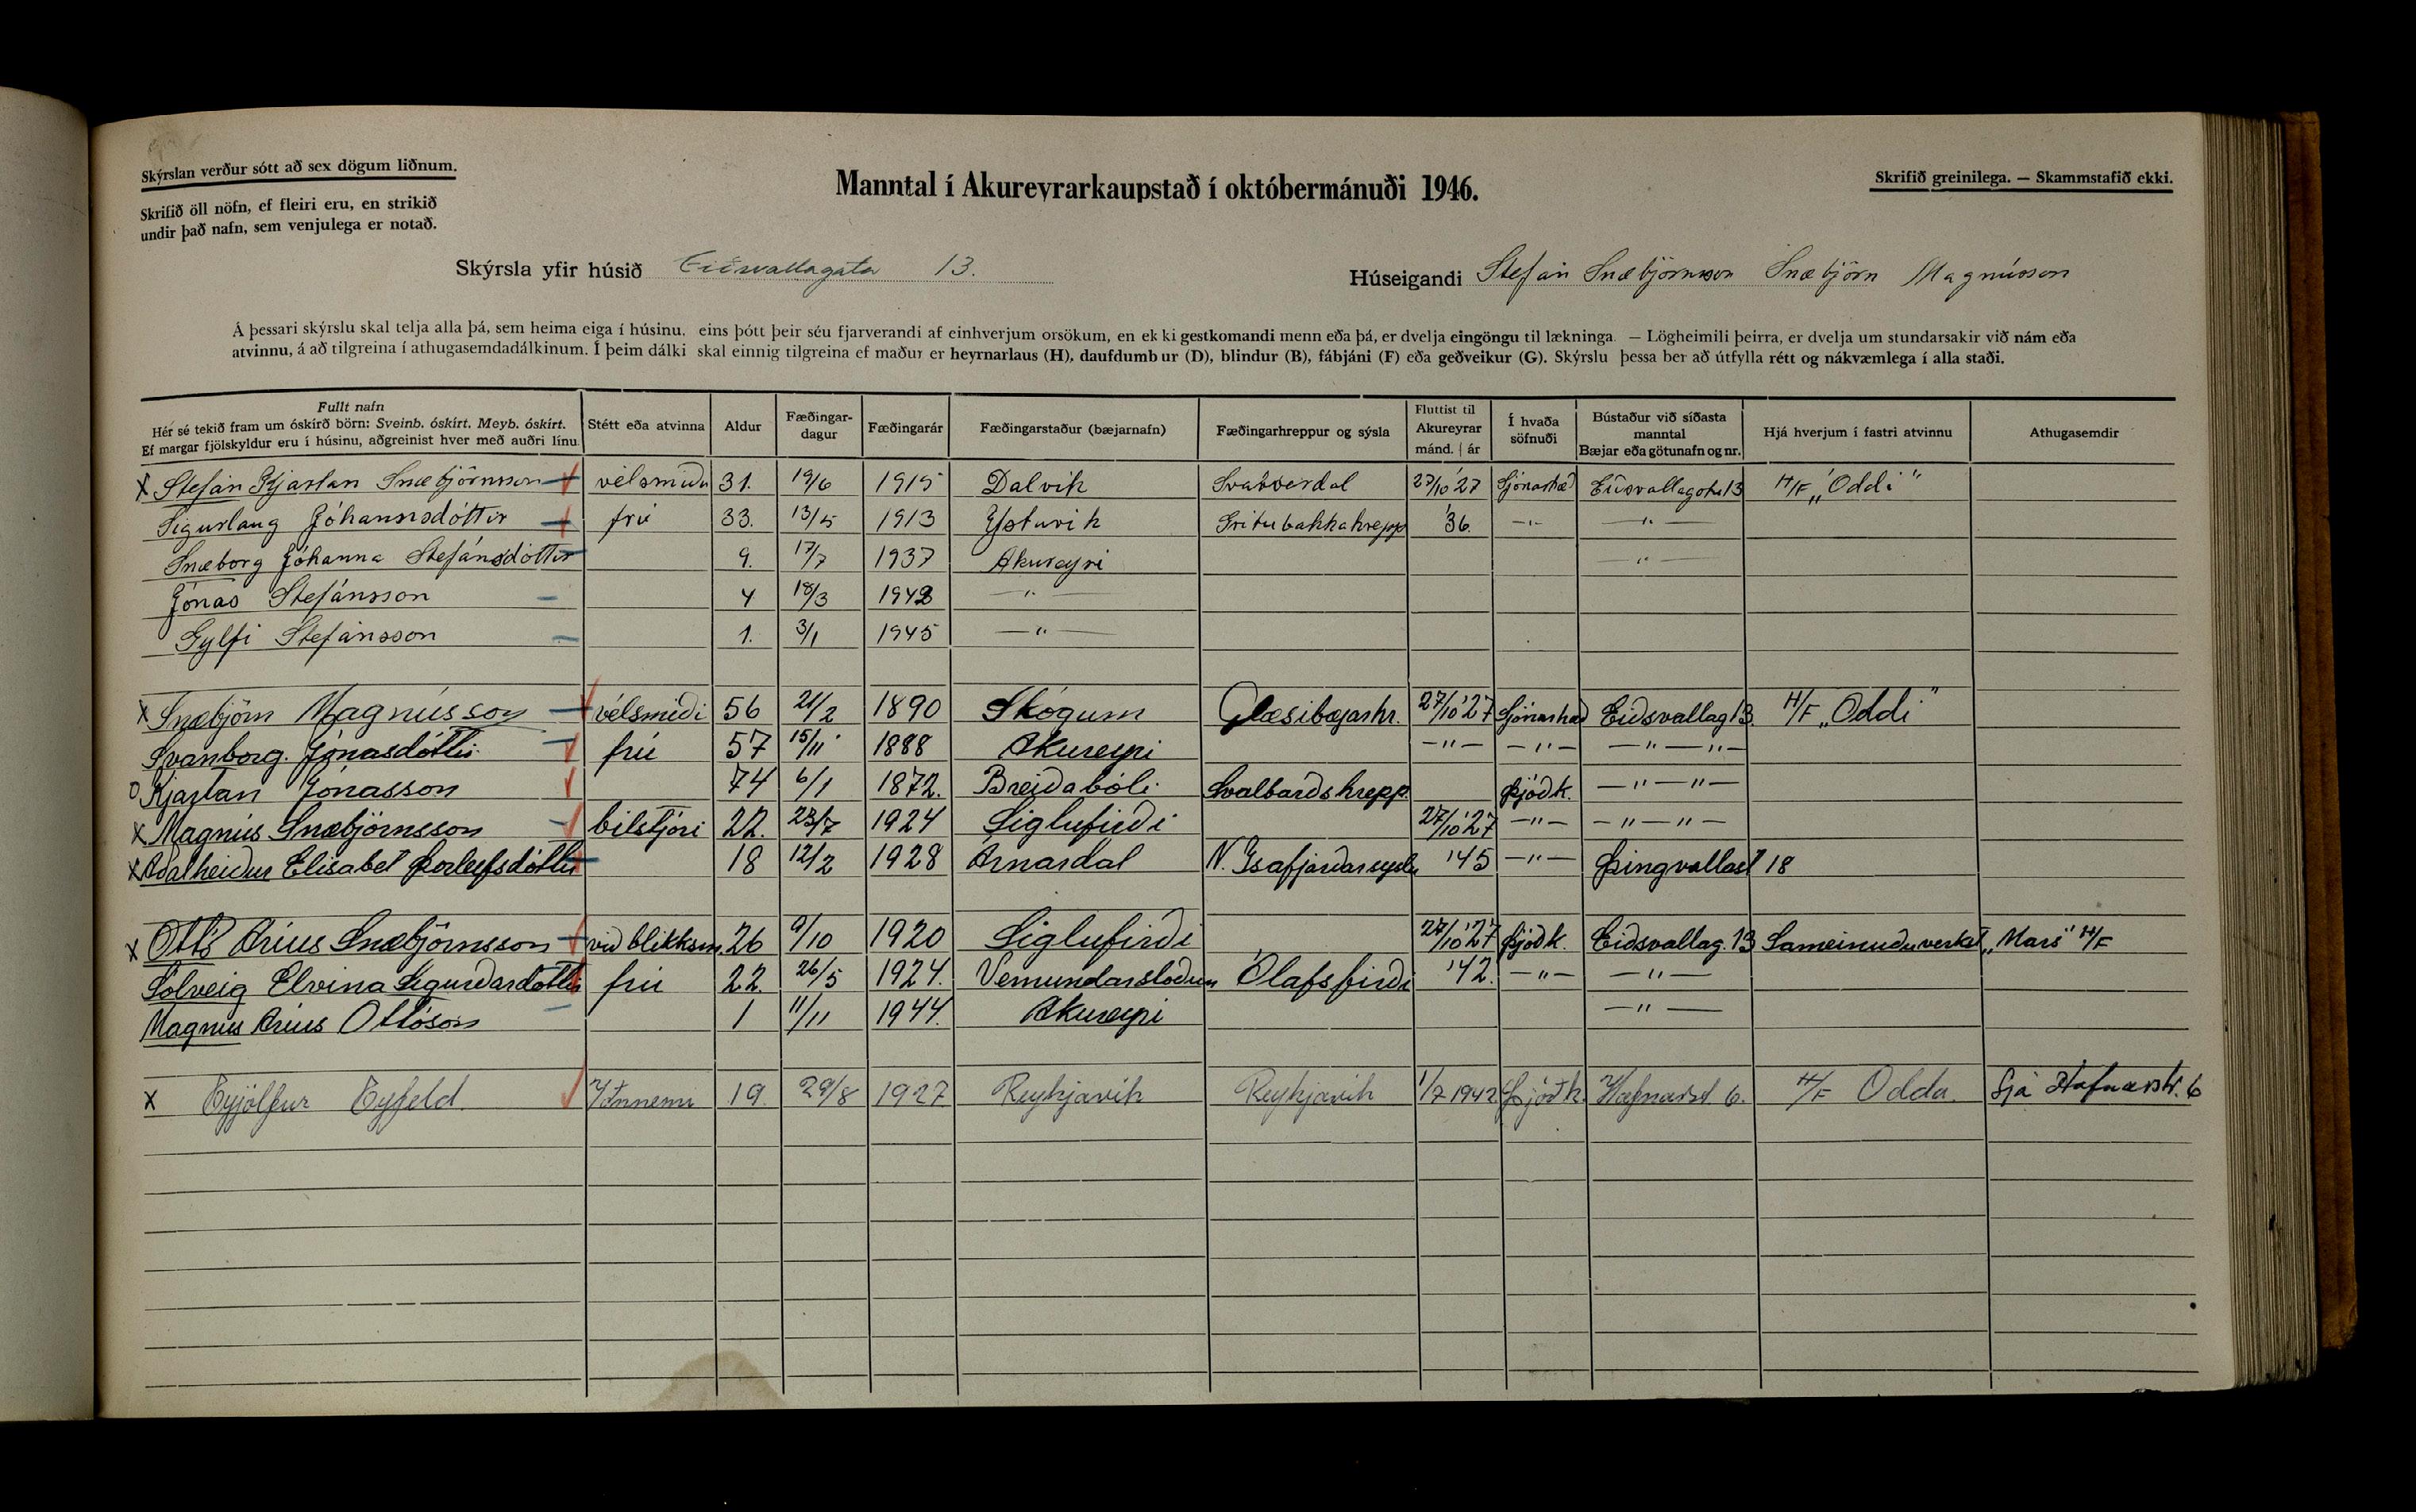 Skýrslan verður sótt að sex dögum liðnum.
Skrifið öll nöfn, ef fleiri eru, en strikið
undir það nafn, sem venjulega er notað.
Manntal í Akureyrarkaupstað í októbermánuði 1946.
Skrifið greinilega. — Skammstafið ekki.
Skýrsla yfir húsið Eiðsvallagata 13.
Húseigandi Stefán Snæbjörnsson Snæbjörn Magnússon
Á þessari skýrslu skal telja alla þá, sem heima eiga í húsinu, eins þótt þeir séu fjarverandi af einhverjum orsökum, en ekki gestkomandi menn eða þá, er dvelja eingöngu til lækninga. — Lögheimili þeirra, er dvelja um stundarsakir við nám eða
atvinnu, á að tilgreina í athugasemdadálkinum. Í þeim dálki skal einnig tilgreina ef maður er heyrnarlaus (H), daufdumbur (D), blindur (B), fábjáni (F) eða geðveikur (G). Skýrslu þessa ber að útfylla rétt og nákvæmlega í alla staði.
Fullt nafn
Hér sé tekið fram um óskírð börn: Sveinb. óskírt. Meyb. óskírt.
Ef margar fjölskyldur eru í húsinu, aðgreinist hver með auðri línu.
Stétt eða atvinna
Aldur
Fæðingar-
dagur
Fæðingarár
Fæðingarstaður (bæjarnafn)
Fæðingarhreppur og sýsla
Fluttist til
Akureyrar
mánd. | ár
Í hvaða
söfnuði
Bústaður við síðasta
manntal
Bæjar eða götunafn og nr.
Hjá hverjum í fastri atvinnu
Athugasemdir
x Stefán Kjartan Snæbjörnsson vélsmiður 31. 19/6 1915 Dalvík Svarfaðardal 27/10 '27 Sjónarhæð Eiðsvallagötu 13 H/F „Oddi"
Sigurlaug Jóhannsdóttir frú 33. 13/5 1913 Ystuvík Gritubakkahrepp '36. —"— —"—
Snæborg Jóhanna Stefánsdóttir 9. 17/7 1937 Akureyri —"—
Jónas Stefánsson 4 18/3 1942 —"—
Gylfi Stefánsson 1. 3/1 1945 —"—
x Snæbjörn Magnússon vélsmiði 56 21/2 1890 Skógum Glæsibæjarhr. 27/10 '27 Sjónarhæð Eiðsvallag 13. H/F „Oddi"
Svanborg Jónasdóttir frú 57 15/11 1888 Akureyri —"— —"— —"—"—
o Kjartan Jónasson 74 6/1 1872. Breiðabóli Svalbarðshrepp. Þjóðk. —"—"—
x Magnús Snæbjörnsson bílstjóri 22. 23/7 1924 Siglufirði 27/10 '27 —"— —"—"—
x Aðalheiður Elisabet Þorleifsdóttir 18 12/2 1928 Arnardal N. Ísafjarðarsýslu '45 —"— Þingvallast 18
x Ottó Arius Snæbjörnsson við blikksm. 26 9/10 1920 Siglufirði 27/10 '27 Þjóðk. Eiðsvallag. 13 Sameinuðu verkst. „Mars" H/F
Solveig Elvina Sigurðardóttir frú 22. 26/5 1924. Vemundarstöðum Ólafsfirði '42. —"— —"—
Magnus Arius Ottóson 1 11/11 1944. Akureyri —"—
x Eyjólfur Eyfeld. Iðnnemi 19. 29/8 1927 Reykjavík Reykjavík 1/7 1942 Þjóðk. Hafnarst. 6. H/F Odda. Sjá Hafnarstr. 6